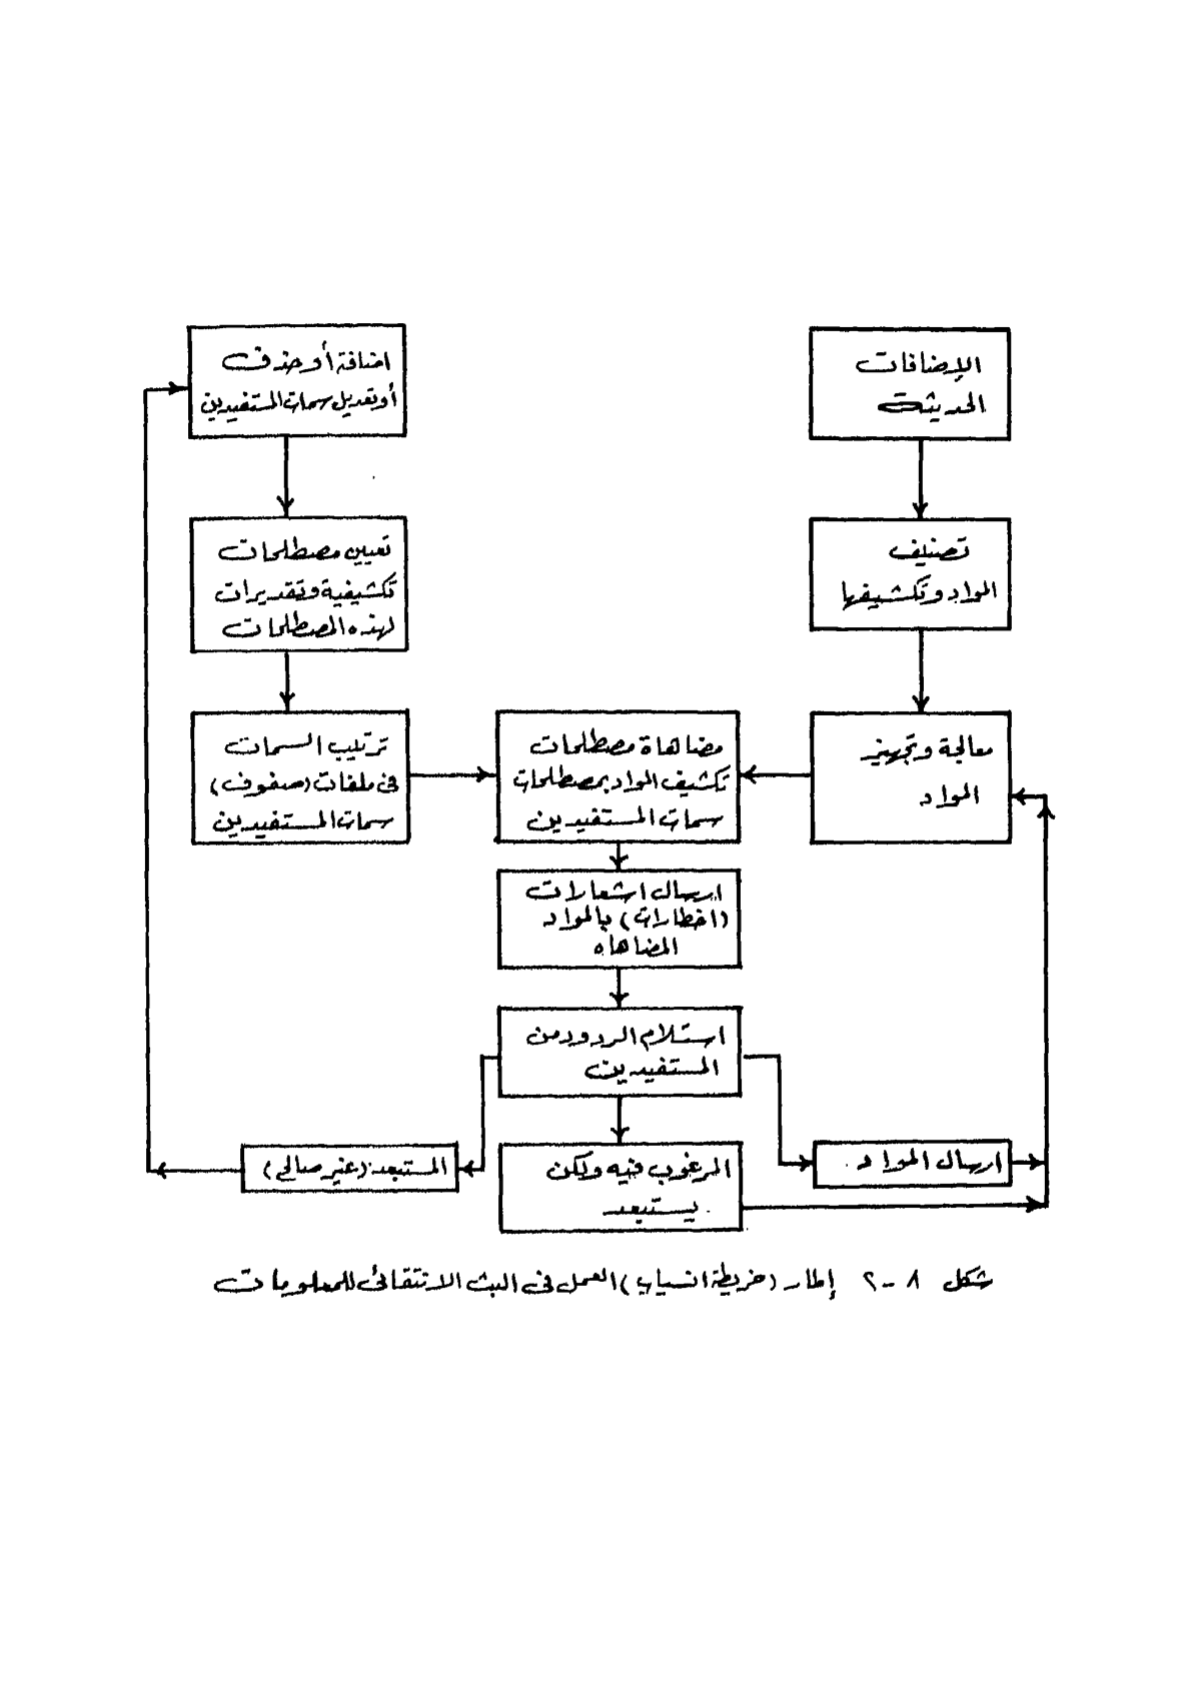 الإضافات
الحديثة
تصنيف
المواد وتكشيفها
معالجة وتجهيز
المواد
اضافة أو حذف
أو تعديل سمات المستفيدين
تعيين مصطلحات
تكشيفية وتقديرات
لهذه المصطلحات
ترتيب السمات
فى ملفات (صفوف)
سمات المستفيدين
مضاهاة مصطلحات
تكشيف المواد بمصطلحات
سمات المستفيدين
ارسال اشعارات
(اخطارات) بالمواد
المضاهاه
استلام الردود من
المستفيدين
ارسال المواد.
المرغوب فيه ولكن
يستبعد.
المستبعد (غير صالح)
شكل ٨ - ٢ إطار (خريطة انسياب) العمل فى البث الانتقائى للمعلومات